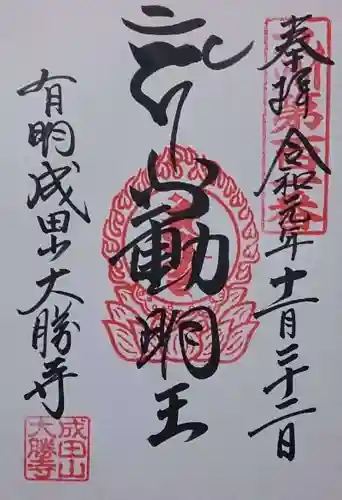 奉拝 令和元年十一月二十二日
動明王
有明成田山大勝寺
成田山
大勝寺